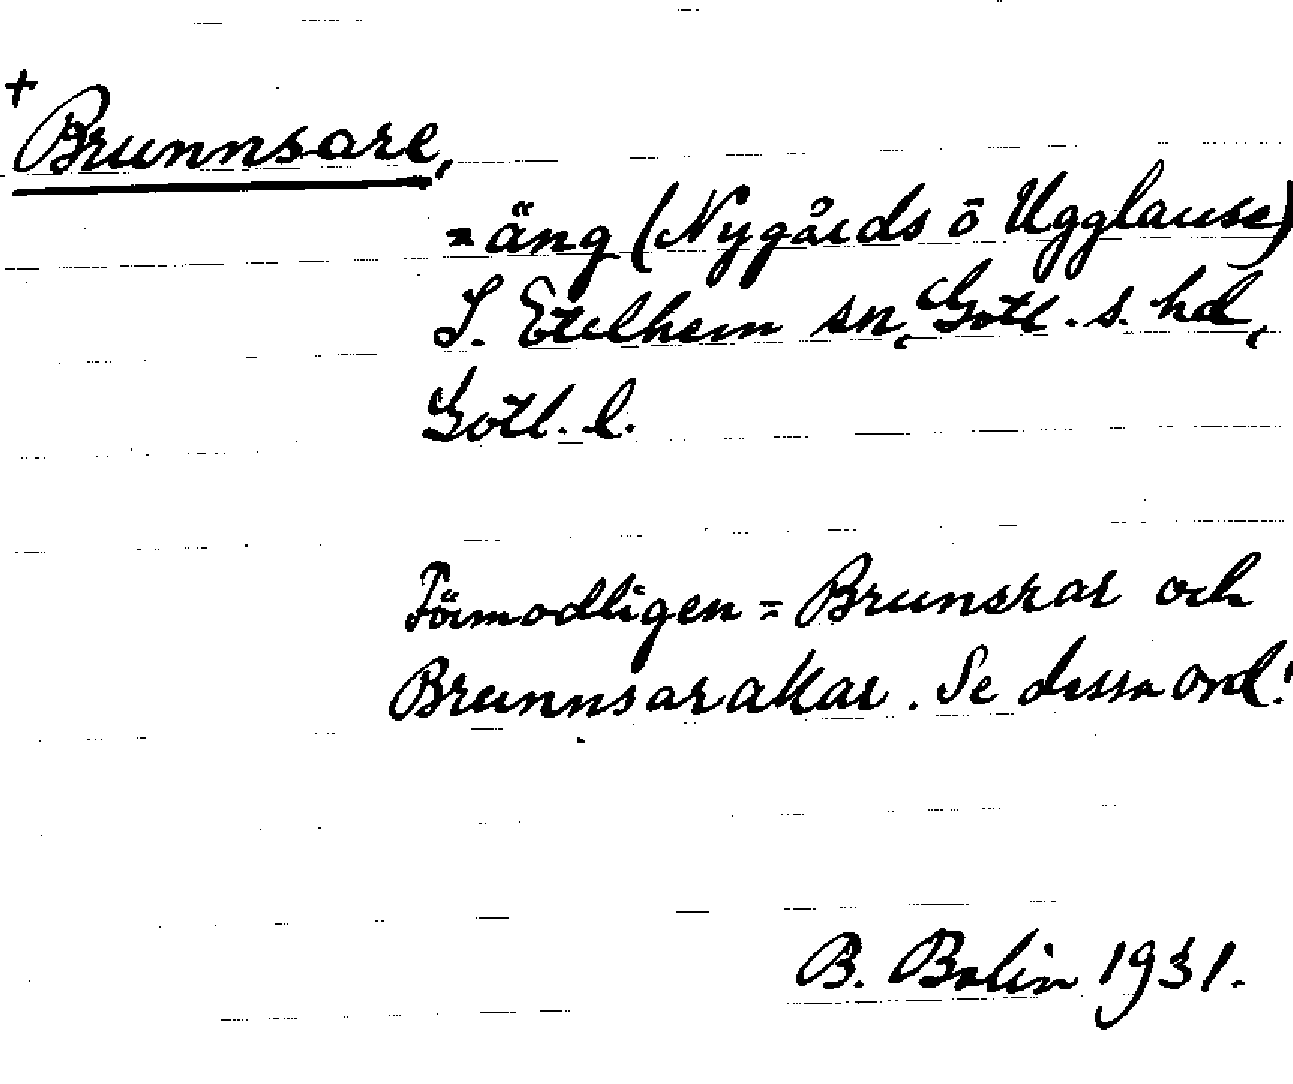 +
Brunnsare,
= äng (Nygårds o Ugglause)
I. Etelhem sn, Gotl. s. hd,
Gotl. l.
Förmodligen = Brunsrar och
Brunnsarakar. Se dessa ord!
B. Bolin 1931.